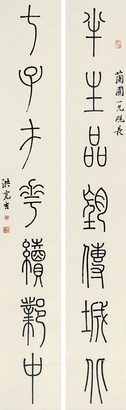 半生品望傳城北
蘭圃一兄硯長
七子才華續鄴中
洪亮吉